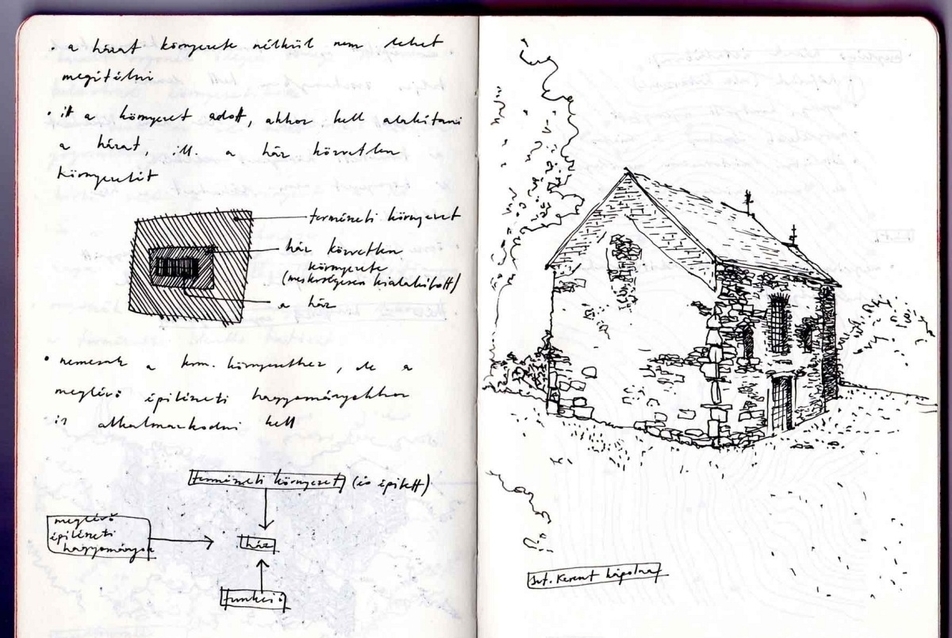 • a házat környezete nélkül nem lehet
megítélni
• itt a környezet adott, ahhoz kell alakítani
a házat, ill. a ház közvetlen
környezetét
természeti környezet
ház közvetlen
környezete
(mesterségesen kialakított)
a ház
• nemcsak a term. környezethez, de a
meglévő építészeti hagyományokhoz
is alkalmazkodni kell
természeti környezet (és épített)
meglévő
építészeti
hagyományok
ház
funkció
Szt. Kereszt kápolna